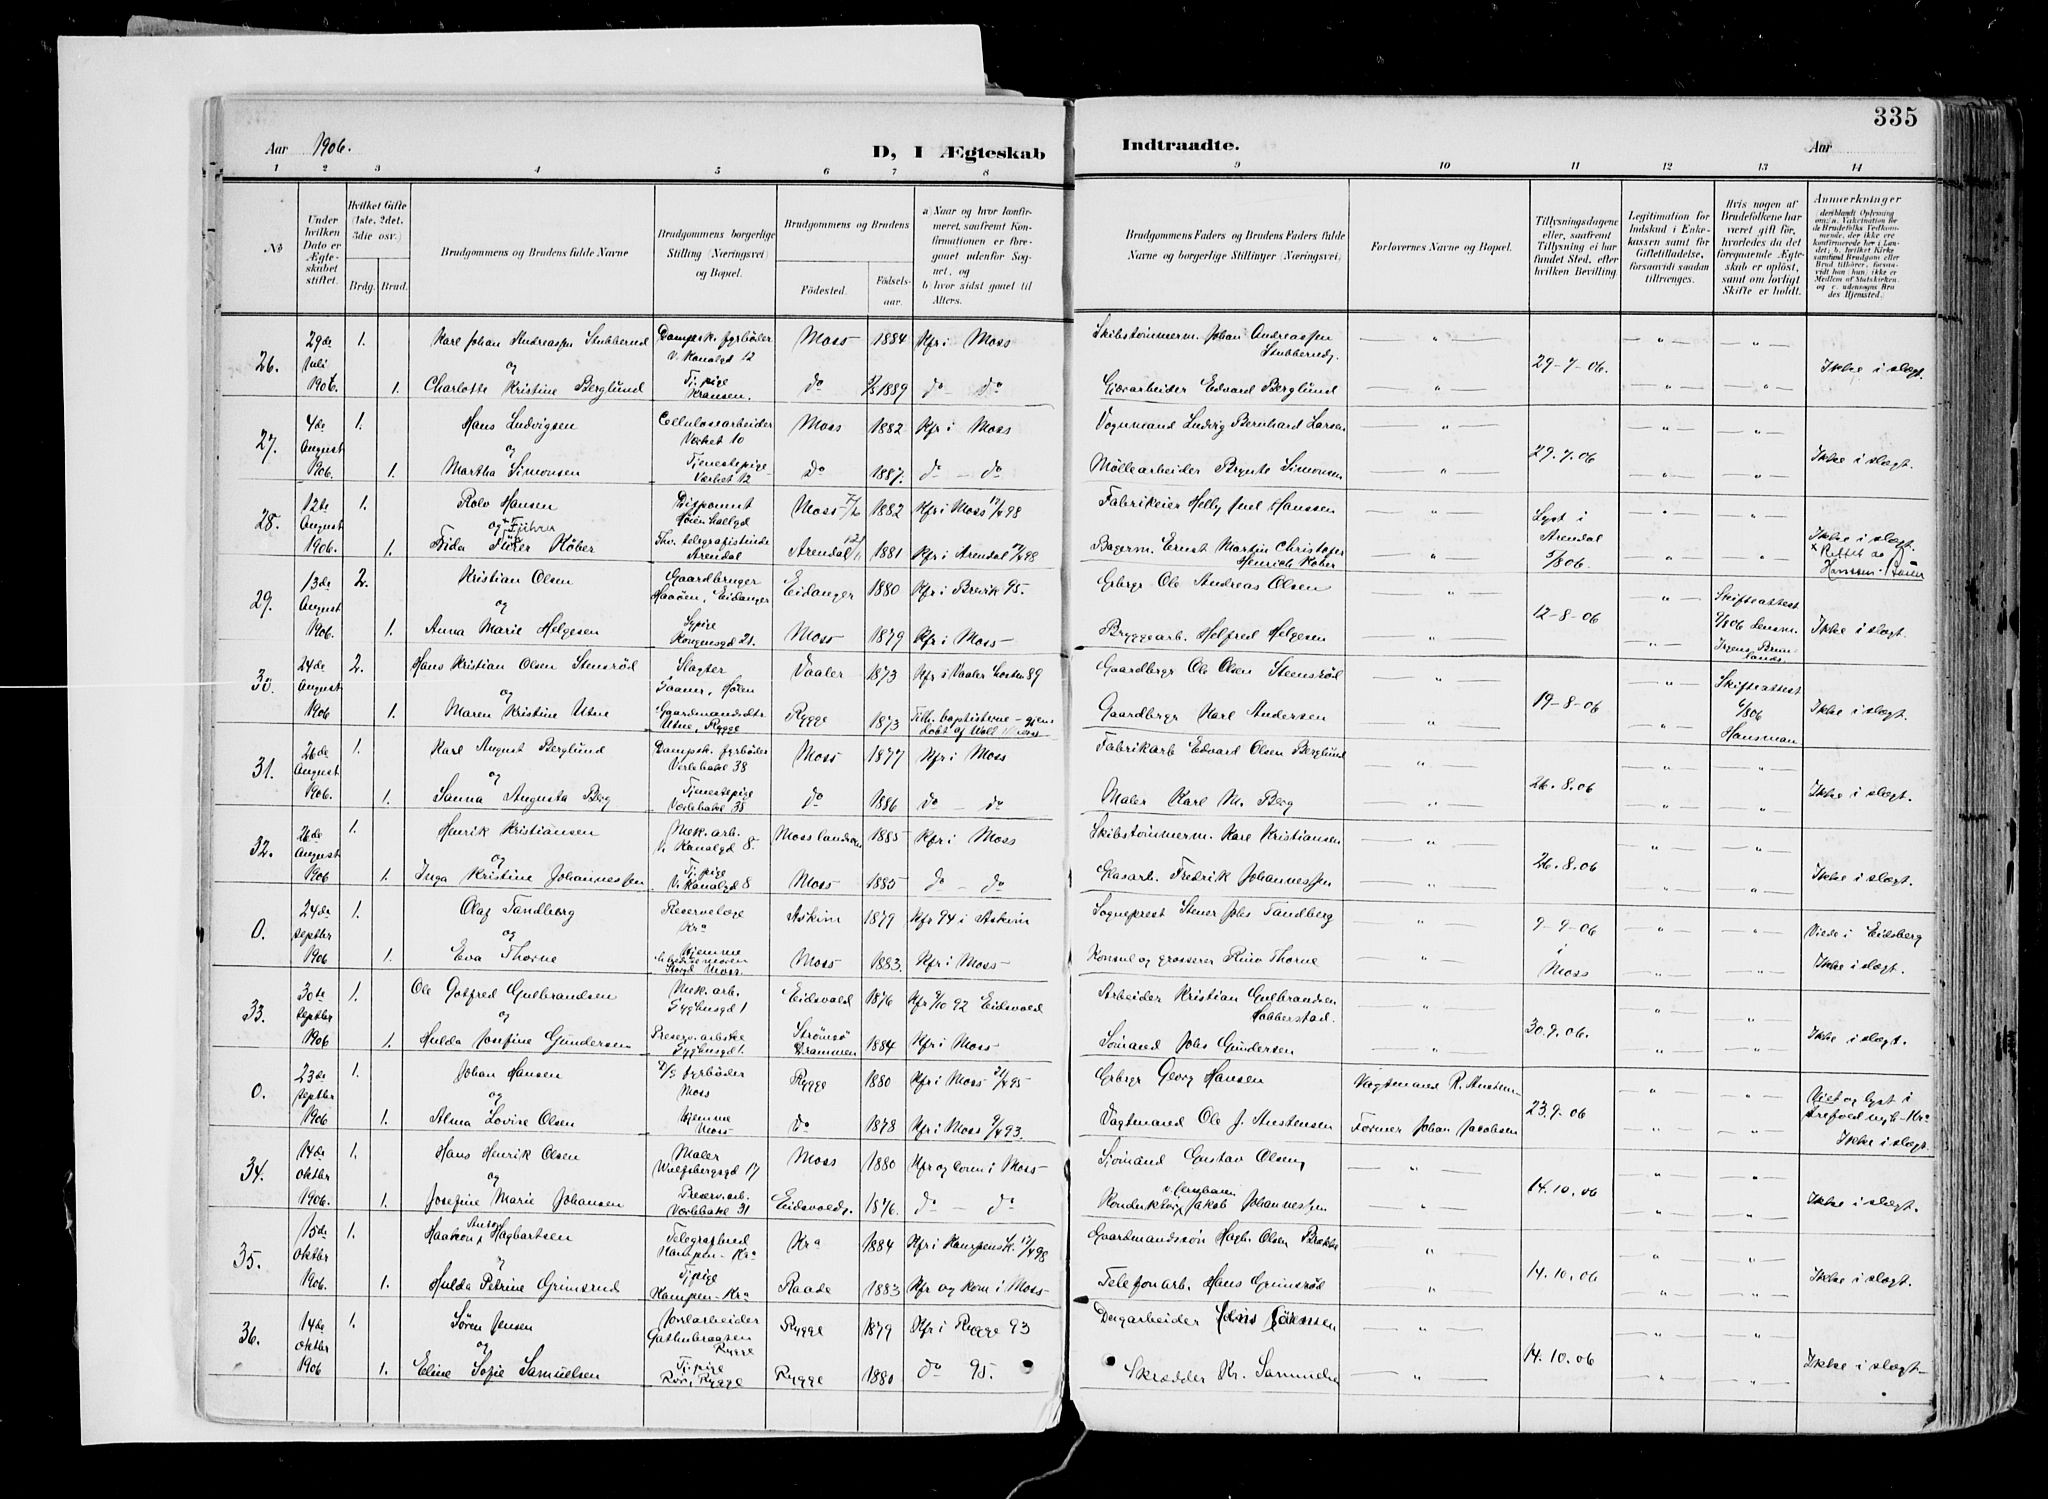 335
Aar 1906.
D, I Ægteskab
Indtraadte.
Aar
1 2 3 4 5 6 7 8 9 10 11 12 13 14
No
Under hvilken Dato er Ægteskabet stiftet.
Hvilket Gifte (1ste, 2det, 3die osv.)
Brdg. Brud.
Brudgommens og Brudens fulde Navne
Brudgommens borgerlige Stilling (Næringsvei) og Bopæl.
Brudgommens og Brudens
Fødested.
Fødselsaar.
a) Naar og hvor konfirmeret, saafremt Konfirmationen er foregaaet udenfor Sognet, og
b) hvor sidst gaaet til Alters.
Brudgommens Faders og Brudens Faders fulde Navne og borgerlige Stillinger (Næringsvei)
Forlovernes Navne og Bopæl.
Tillysningsdagene eller, saafremt Tillysning ei har fundet Sted, efter hvilken Bevilling
Legitimation for Indskud i Enkekassen samt for Giftetilladelse, forsaavidt saadan tiltrænges.
Hvis nogen af Brudefolkene har været gift før, hvorledes da det foregaaende Ægteskab er opløst, samt om lovligt Skifte er holdt.
Anmerkninger
26. 29de Juli 1906. 1. Karl Johan Andreassen Stubberud Dampsk. fyrbøder V. Kanalgd 12 Moss 1884 Kfr i Moss Skibstømmerm. Johan Andreassen Stubberud. 29-7-06. Ikke i slægt.
og
1. Charlotte Kristine Berglund Tj.pige Kransen. do 1889 do - do Edvard Berglund
27. 4de August 1906. 1. Hans Ludvigsen Cellulosearbeider Værket 10 Moss 1882 Kfr i Moss Vognmand Ludvig Bernhard Larsen 29.7.06 Ikke i slægt.
og
1. Martha Simonsen Tjenestepige Værket 12 do 1887. do - do Møllearbeider Brynte Simonsen
28. 12te August 1906. 1. Rolv Hansen Disponent Moss 1882 Kfr i Moss 98 Fabrikeier Helly Juel Hanssen Lyst i Arendal 5/8 06. Ikke i slægt.
og
1. Fida Köber telegrafistinde Arendal Arendal 1881 Kfr i Arendal 98 Bagerm. Ernst Martin Christofer Heinrich Köber
29. 13de August 1906. 2. Kristian Olsen Gaardbruger Eidanger Eidanger 1880 Kfr i Brevik 95. Grbrgr Ole Andreas Olsen 12-8-06 Skifteattest Ikke i slægt.
og
1. Anna Marie Helgesen Sypige Kongensgd 21. Moss 1879 Kfr i Moss Bryggearb. Helfred Helgesen
30. 24de August 1906 2. Hans Kristian Olsen Stensrød Slagter Vaaler 1873 Kfr i Vaaler 89 Gaardbrgr Ole Olsen Steensrød 19-8-06 Skifteattest 6/8 06 Hansman Ikke i slægt.
og
1. Maren Kristine Utne Gaardmandsdtr. Utne, Rygge Rygge 1873 Gaardbrgr Karl Andersen
31. 26de August 1906. 1. Karl August Berglund Dampsk. fyrbøder Verlebakk 38 Moss 1877 Kfr i Moss Fabrikarb Edvard Olsen Berglund 26.8.06 Ikke i slægt.
og
1. Sanna Augusta Berg Tjenestepige Verlebakk 38 do 1886 do - do Maler Karl M. Berg
32. 26de August 1906 1. Henrik Kristiansen Mek. arb. V. Kanalgd 8. Moss landsogn 1885 Kfr i Moss Skibstømmerm. Karl Kristiansen 26.8.06 Ikke i slægt.
og
1. Inga Kristine Johannessen Tj.pige V. Kanalgd 8 Moss 1885 do - do Glasarb. Fredrik Johannessen
0. 24de Septbr 1906 1. Olaf Tandberg Reservelæge Kra Askim 1879 Kfr 94 i Askim Sogneprest Stener Johs Tandberg 9-9-06 i Moss Viede i Eidsberg
og
1. Eva Thorne Hjemme Moss. Moss 1883. Kfr i Moss Konsul og grosserer Thorne Ikke i slægt.
33. 30te Septbr 1906 1. Ole Gotfred Gulbrandsen Mek. arb. Tyghusgd 1 Eidsvold 1876 Kfr 92 Eidsvold Arbeider Kristian Gulbrandsen Habberstad. 30.9.06. Ikke i slægt.
og
1. Hulda Josefine Gundersen Tyghusgd 1. Strømsø Drammen 1884 Kfr i Moss Sømand Johs Gundersen
0. 23de Septbr 1906 1. Johan Hansen fyrbøder Moss Rygge 1880 Kfr i Moss 95 Grbrgr Georg Hansen Vagtmand R. Anstensen 23.9.06 Viet og lyst i
og
1. Alma Lovise Olsen Hjemme Moss do 1878 Kfr i Moss 93. Vagtmand Ole J. Anstensen Former Johan Jacobsen Ikke i slægt.
34. 14de Oktbr 1906. 1. Hans Henrik Olsen Maler Wulfsbergsgd 17 Moss 1880 Kfr og kom i Moss Sjømand Gustav Olsen 14.10.06 Ikke i slægt.
og
1. Josefine Marie Johansen Preserv. arb. Værlebakk 31 Eidsvold. 1876. do - do Konduktør Jakob Johannessen
35. 15de Oktbr 1906. 1. Haakon Hagbartsen Telegrafbud Kampen - Kra Kra 1884 Kfr i Kampens K. 98 Gaardmandssøn Hagb. Olsen 14.10.06 Ikke i slægt.
og
1. Hulda Petrine Grimsrud Tj.pige Kampen - Kra Raade 1883 Kfr og kom i Moss Telefonarb. Hans Grimsrød
36. 14de Oktbr 1906 1. Søren Jensen Jordarbeider Rygge Rygge 1879 Kfr i Rygge 93 Dagarbeider Jens Sörensen 14.10.06 Ikke i slægt
og
1. Eline Sofie Samuelsen Tj.pige Rør i Rygge Rygge 1880 do 95. Skrædder Kr. Samuelsen